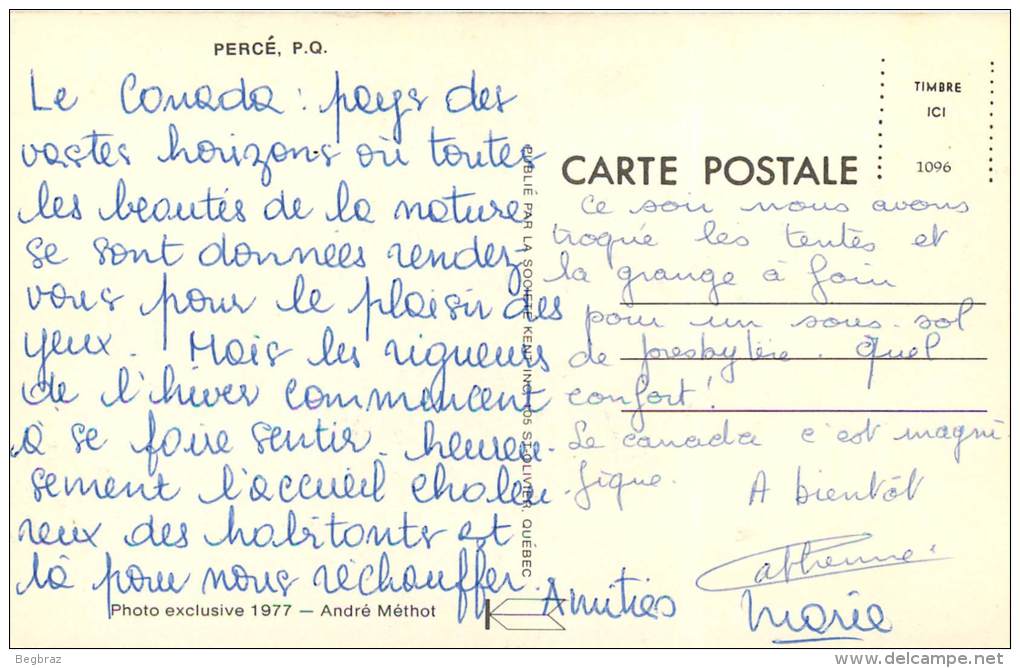 PERCÉ, P.Q.
Le Canada : pays des
vastes horizons où toutes
les beautés de la nature
se sont données rendez-
vous pour le plaisir des
yeux. Mais les rigueurs
de l'hiver commencent
à se faire sentir. heureu-
sement l'accueil chaleu
reux des habitants est
là pour nous réchauffer.
Amitiés
Marie
Photo exclusive 1977 — André Méthot
PUBLIÉ PAR LA SOCIETE KENT INC. 105 ST-OLIVIER, QUÉBEC
TIMBRE
ICI
1096
CARTE POSTALE
Ce soir nous avons
troqué les tentes et
la grange à foin
pour un sous-sol
de presbytère. Quel
confort!
Le canada c'est magni
fique.
A bientôt
Catherine
Begbraz